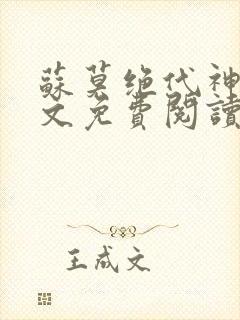 蘇莫绝代神
文免費閱讀
王成文